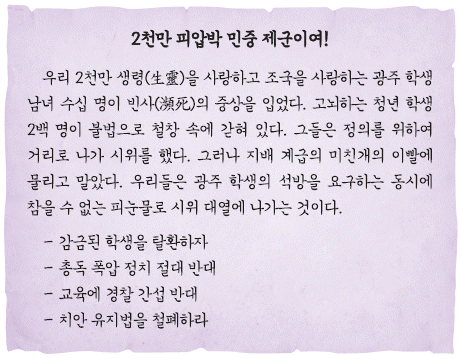 2천만 피압박 민중 제군이여!
우리 2천만 생령(生靈)을 사랑하고 조국을 사랑하는 광주 학생
남녀 수십 명이 빈사(瀕死)의 중상을 입었다. 고뇌하는 청년 학생
2백 명이 불법으로 철창 속에 갇혀 있다. 그들은 정의를 위하여
거리로 나가 시위를 했다. 그러나 지배 계급의 미친개의 이빨에
물리고 말았다. 우리들은 광주 학생의 석방을 요구하는 동시에
참을 수 없는 피눈물로 시위 대열에 나가는 것이다.
- 감금된 학생을 탈환하자
- 총독 폭압 정치 절대 반대
- 교육에 경찰 간섭 반대
- 치안 유지법을 철폐하라